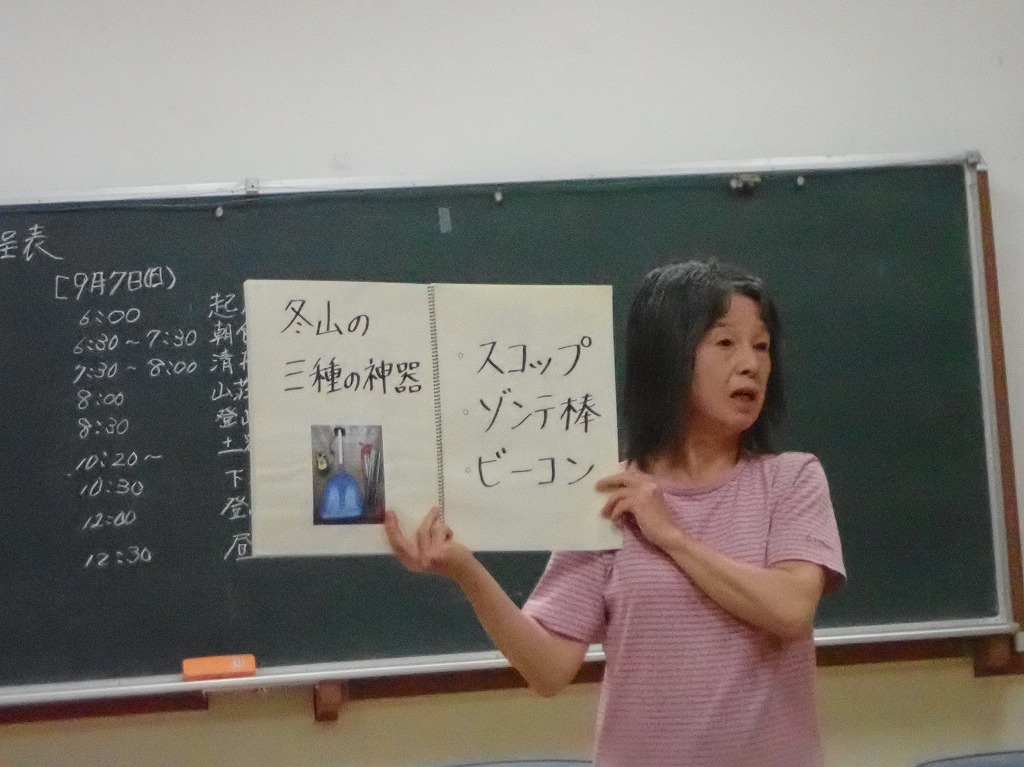 程表
[9月7日(日)
6:00 起
6:30～7:30 朝食
7:30～8:00 清
8:00 山荘
8:30 登山
10:20～ 土
10:30 下
12:00 登
12:30 昼
冬山の
三種の神器
◦スコップ
◦ゾンテ棒
◦ビーコン